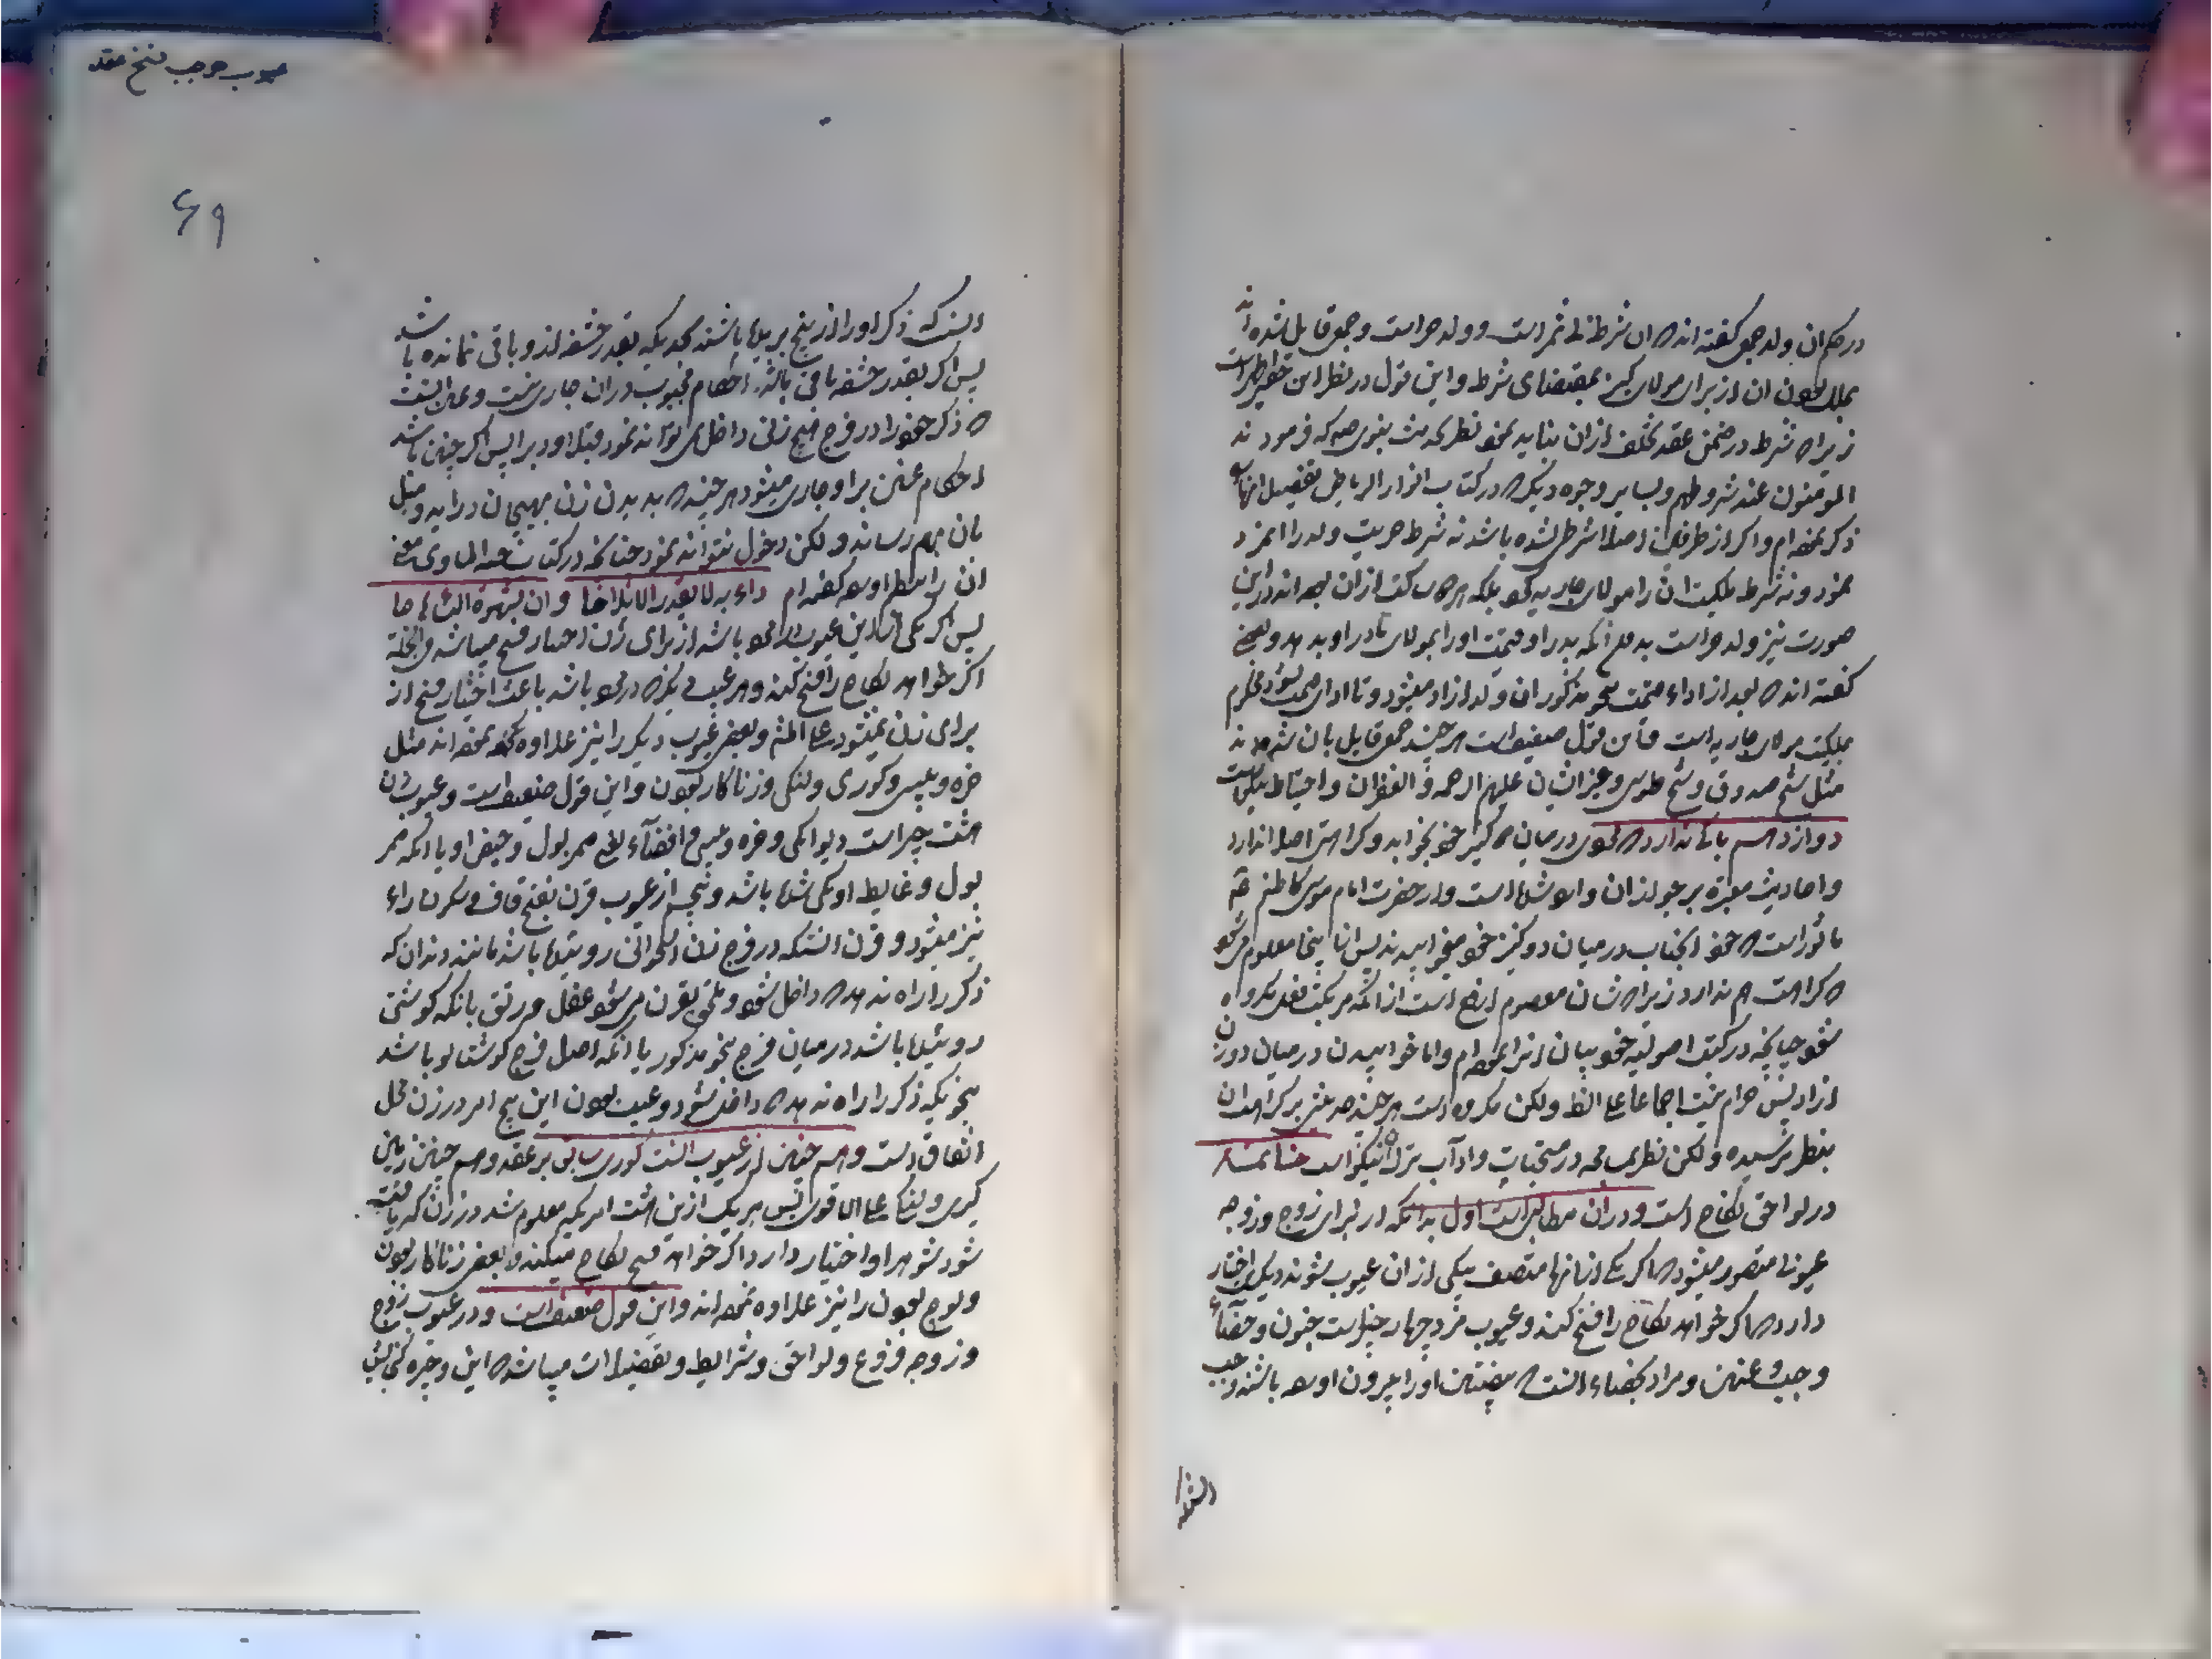 در حکم ان ولد جمعی گفته اند که ان شرط بی ثمر است و ولد حر است و جمعی قایل شده اند
بملک بودن ان از برای مولای کنیز بمقتضای شرط و این قول در نظر این حقیر اظهر است
زیرا که شرط در ضمن عقد تخلف از ان نباید نمود نظر بحدیث نبوی ص که فرمودند
المومنون عند شروطهم و بسایر وجوه دیگر که در کتاب انوار الریاض تفصیل انها را
ذکر نموده ام و اگر از طرفین اصلا شرط نشده باشد نه شرط حریت ولد را
نمود و نه شرط ملکیت ان را مولای جاریه نمود بلکه هر دو ساکت از ان بوده اند در این
صورت نیز ولد حر است بدون انکه پدر او قیمت او را بمولای مادر او بدهد و بعضی
گفته اند که بعد از اداء قیمت بنحو مذکور ان ولد ازاد میشود و تا ادای قیمت نشود محکوم
بملکیت مولای جاریه است و این قول ضعیف است هر چند جمعی قایل بان شده اند
مثل شیخ صدوق و شیخ طوسی و غیر ایشان علیهم الرحمة و الغفران و احتیاط نیکو است
دوازدهم باکی ندارد که مولی در میان دو کنیز خود بخوابد و کراهت اصلا ندارد
و احادیث معتبره بر جواز ان وارد شده است و از حضرت امام موسی کاظم ع
ماثور است که خود انجناب در میان دو کنیز خود میخوابیدند پس از اینجا معلوم میشود
که کراهت هم ندارد زیرا که شان معصوم ارفع است از انکه مرتکب فعل مکروه
شود چنانچه در کتب اصولیه خود بیان انرا نموده ام و اما خوابیدن در میان دو زن
ازاد پس حرام نیست اجماعا علی الظ و لکن مکروه است هر چند حدیثی بر کراهت ان
بنظر نرسیده و لکن نظر بتسامح در مستحبات و اداب ترک ان نیکو است
در لواحق نکاح است و در ان مطالب است اول بدانکه از برای زوج و زوجه
عیوبی متصور میشود که اگر یکی از انها متصف بیکی از ان عیوب شوند دیگری اختیار
دارد که اگر خواهد نکاح را فسخ کند و عیوب مرد چهار چیز است جنون و خصآء
و جب و عنن و مراد بخصاء انست که بیضتین او را بیرون اورده باشند و جب
انست که
انست که ذکر او را از بیخ بریده باشند بحدیکه بقدر حشفه از او باقی نمانده باشد
پس اگر بقدر حشفه باقی باشد احکام مجبوب در ان جاری نیست و عنن انست
که ذکر خود را در فرج هیچ زنی داخل نتواند نمود قبلا او دبرا پس اگر چنین باشد
احکام عنن بر او جاری میشود هر چند که بدیدن زن بهیجان دراید و میل
بان بهم رساند و لکن دخول نتواند نمود چنانکه در کتاب
ان را گفته ام داء به لا یقدر الایلاج و ان بشهوة النساء
پس اگر یکی از این عیوب در مرد باشد از برای زن اختیار فسخ میباشد
اگر خواهد نکاح را فسخ کند و هر عیب دیگر که در مرد باشد باعث اختیار فسخ از
برای زن نمیشود علی المش و بعضی عیوب دیگر را نیز علاوه نموده اند مثل
خوره و پیسی و کوری و لنگی و زناکار بودن و این قول ضعیف است و عیوب زن
هشت چیز است دیوانگی و خوره و پیسی و افضآء یعنی ممر بول و حیض او یا انکه ممر
بول و غایط او یکی شده باشد و پنجم از عیوب قرن بفتح قاف و سکون راء
نیز میشود و قرن انستکه در فرج زن استخوانی روئیده باشد مانند دندان که
ذکر را راه ندهد که داخل شود و ملحق بقرن میشود عفل و رتق بانکه گوشتی
روئیده باشد در میان فرج بنحو مذکور یا انکه اصل فرج گوشتالو باشد
بنحویکه ذکر را راه ندهد که داخل شود و عیب بودن این پنج امر در زن محل
اتفاق است و هم چنین از عیوب انست کوری سابق بر عقد و هم چنین زمین
گیری و لنگی علی الاقوی پس هر یک از این هشت امر که معلوم شد در زن که یافت
شود شوهر او اختیار دارد اگر خواهد فسخ نکاح میکند و بعضی زناکار بودن
و لوچ بودن را نیز علاوه نموده اند و این قول ضعیف است و در عیوب زوج
و زوجه فروع و لواحق و شرایط و تفصیلات میباشد که این وجیزه گنجایش
عیوب موجب فسخ عقد
۶۹